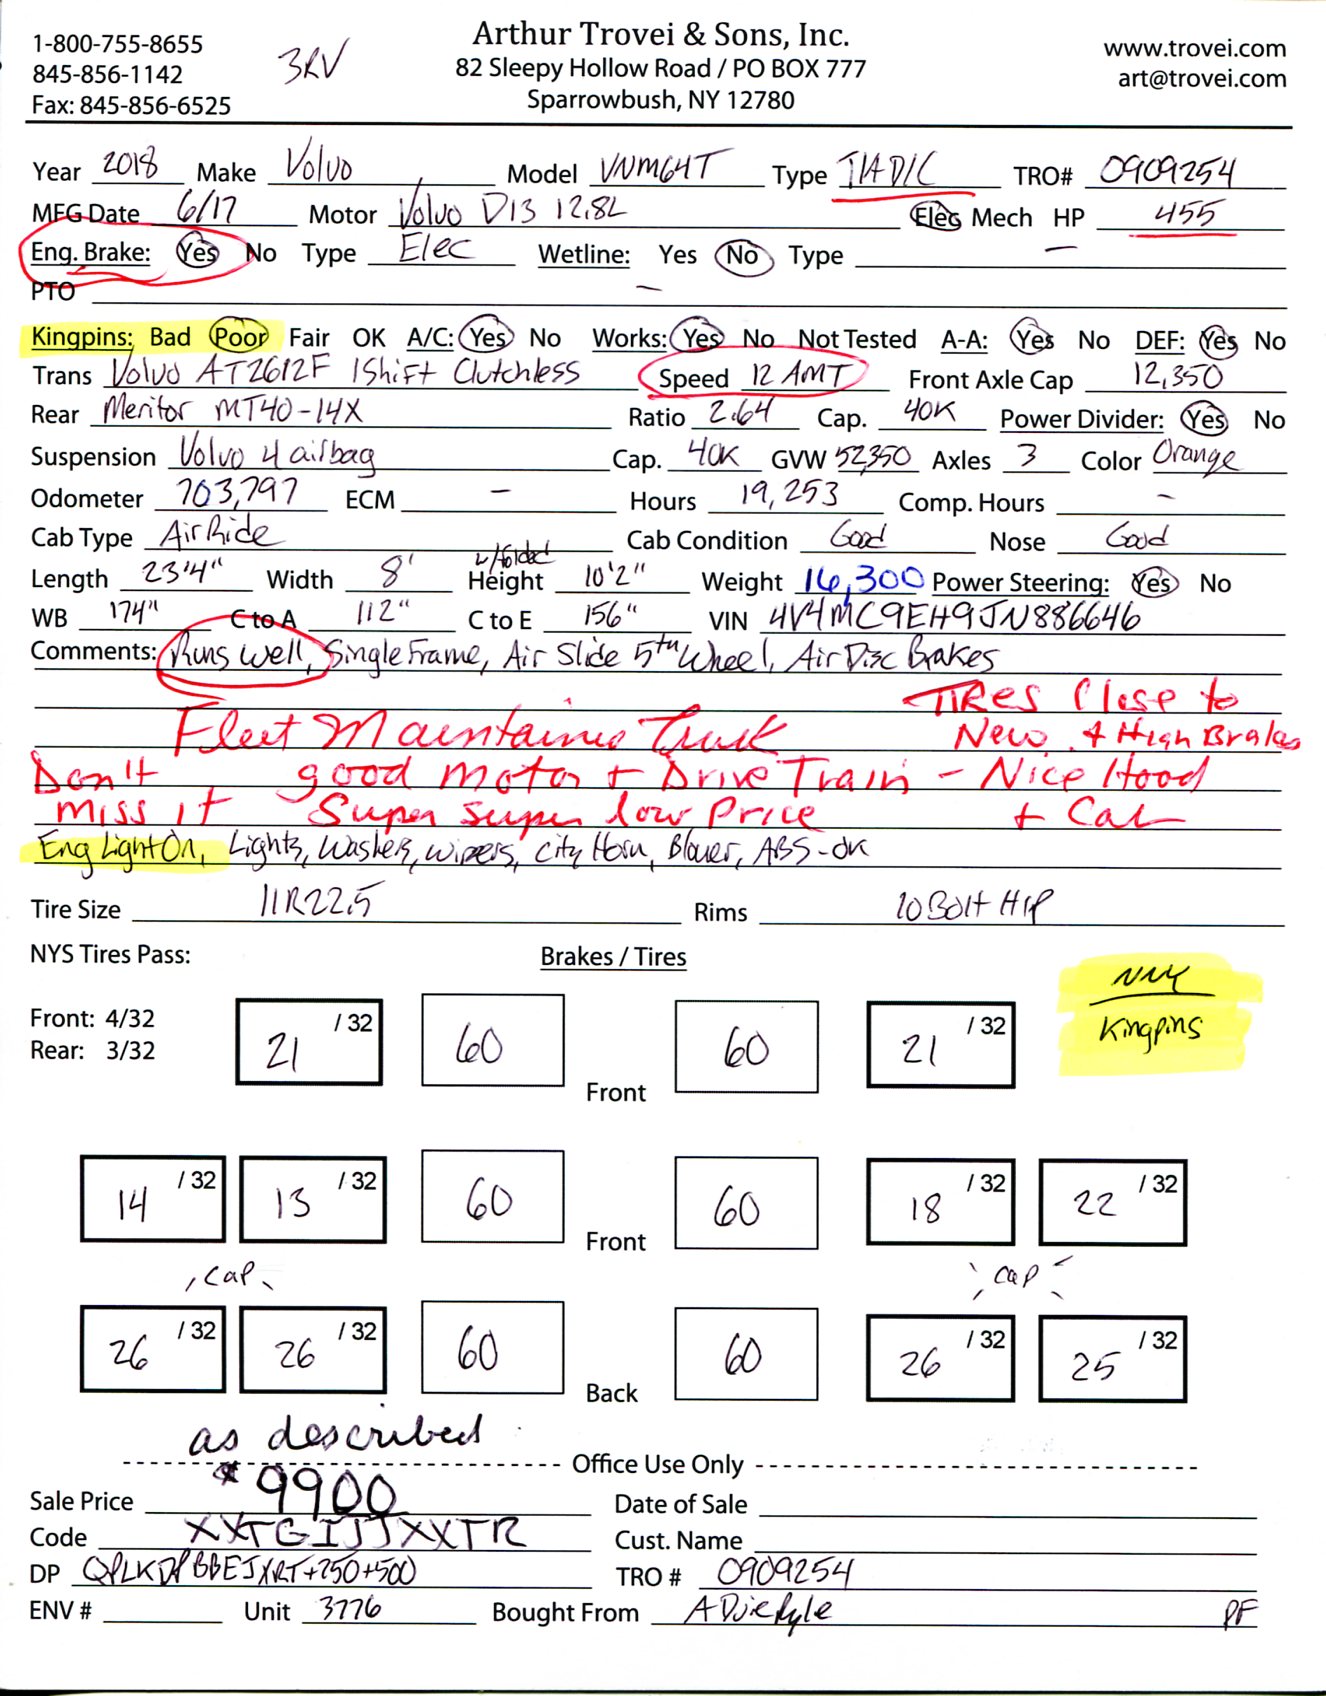 1-800-755-8655
845-856-1142
Fax: 845-856-6525
3RV
Arthur Trovei & Sons, Inc.
82 Sleepy Hollow Road / PO BOX 777
Sparrowbush, NY 12780
www.trovei.com
art@trovei.com
Year 2018 Make Volvo Model VNM64T Type T/A D/C TRO# 0909254
MFG Date 6/17 Motor Volvo D13 12.8L Elec Mech HP 455
Eng. Brake: Yes No Type Elec Wetline: Yes No Type —
PTO —
Kingpins: Bad Poor Fair OK A/C: Yes No Works: Yes No Not Tested A-A: Yes No DEF: Yes No
Trans Volvo AT2612F IShift Clutchless Speed 12 AMT Front Axle Cap 12,350
Rear Meritor MT40-14X Ratio 2.64 Cap. 40K Power Divider: Yes No
Suspension Volvo 4 airbag Cap. 40K GVW 52,350 Axles 3 Color Orange
Odometer 703,797 ECM — Hours 19,253 Comp. Hours —
Cab Type Air Ride Cab Condition Good Nose Good
w/folded
Length 23'4" Width 8' Height 10'2" Weight 16,300 Power Steering: Yes No
WB 174" C to A 112" C to E 156" VIN 4V4MC9EH9JN886646
Comments: Runs well, Single Frame, Air Slide 5th Wheel, Air Disc Brakes
TIRES Close to
Fleet Maintained Truck New & High Brakes
Don't good motor + Drive Train - Nice Hood
miss it Super super low Price + Cab
Eng Light On, Lights, Washers, wipers, City Horn, Blower, ABS-OK
Tire Size 11R22.5 Rims 10 Bolt H/P
NYS Tires Pass: Brakes / Tires
Front: 4/32
Rear: 3/32
NNY
Kingpins
21 /32 60 60 21 /32
Front
14 /32 13 /32 60 60 18 /32 22 /32
Front
Cap Cap
26 /32 26 /32 60 60 26 /32 25 /32
Back
as described
Office Use Only
Sale Price $9900 Date of Sale
Code XXTGIJJXXTR Cust. Name
DP QPLKDPBBEJXRT+250+500 TRO # 0909254
ENV # Unit 3776 Bought From A Duie Pyle PF